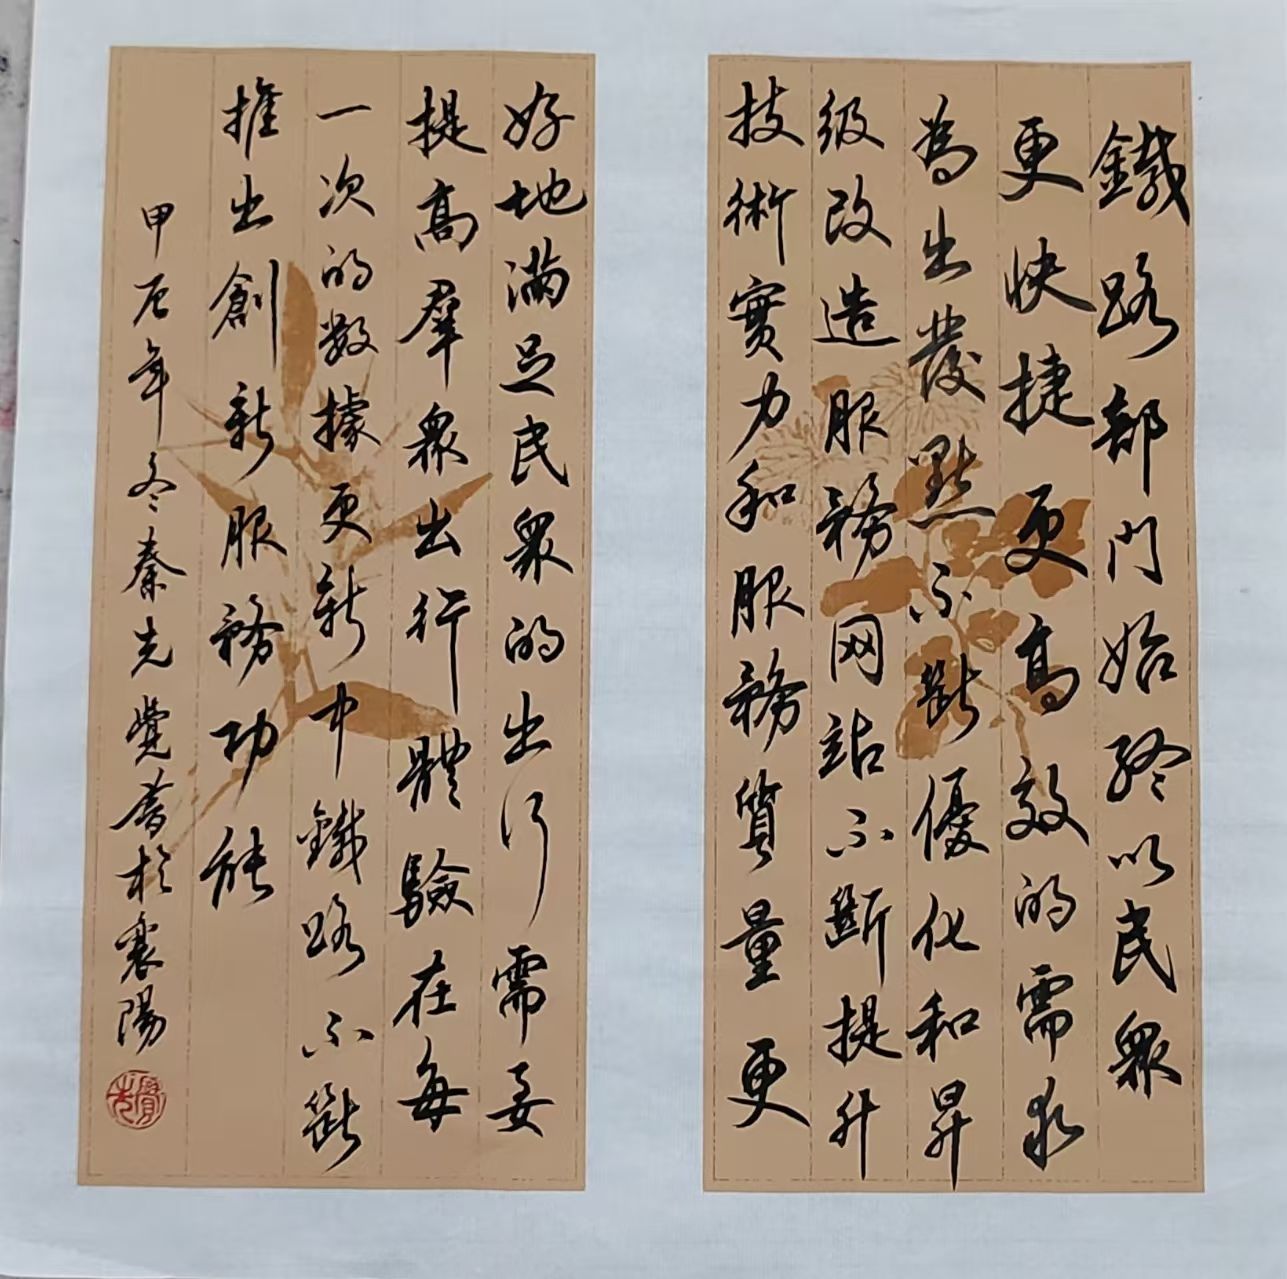 鐵路部門始終以民眾
更快捷更高效的需求
為出發點不斷優化和昇
級改造服務网站不斷提升
技術實力和服務質量更
好地滿足民眾的出行需要
提高羣眾出行體驗在每
一次的数據更新中鐵路不斷
推出創新服務功能
甲辰年冬秦先覺書於襄陽
先覺